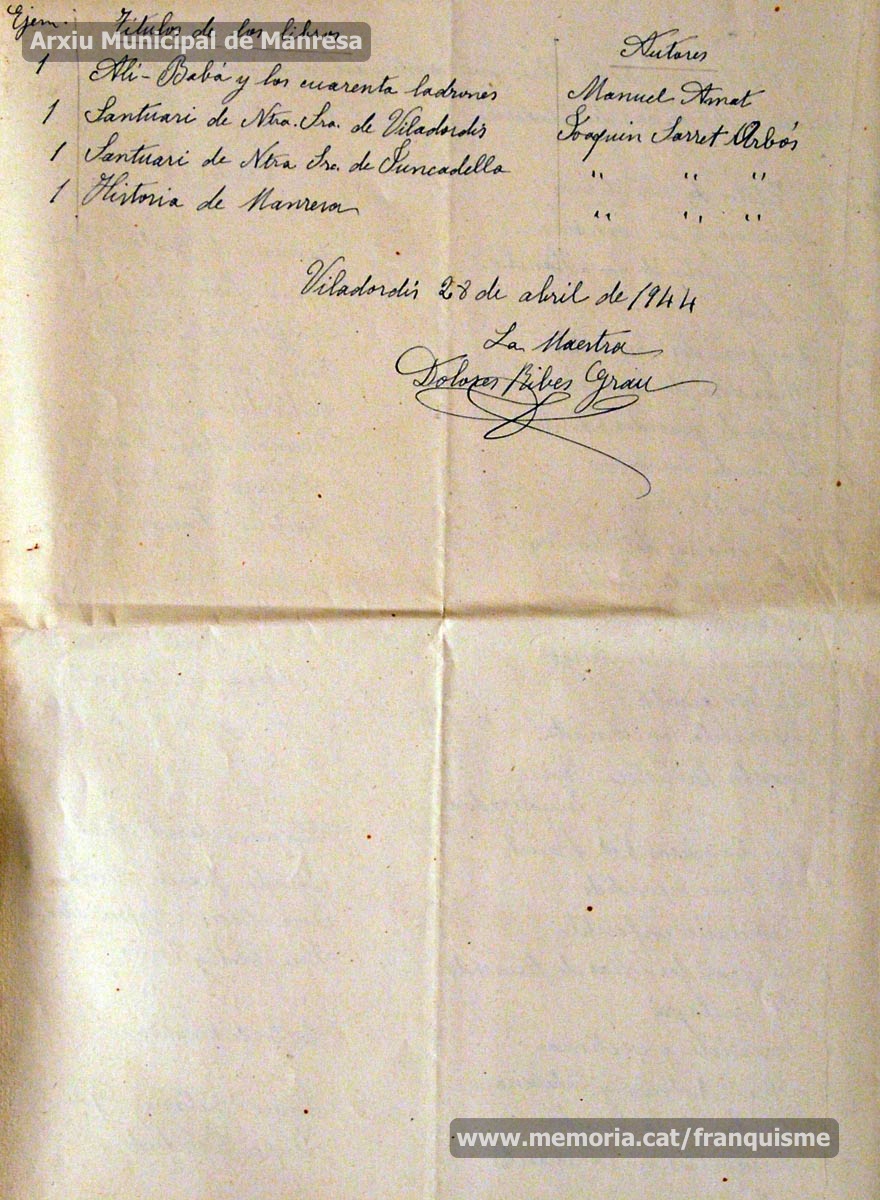 Ejem. Títulos de los libros Autores
Arxiu Municipal de Manresa
1 Alí-Babá y los cuarenta ladrones Manuel Amat
1 Santuari de Ntra. Sra. de Viladordis Joaquin Sarret Arbós
1 Santuari de Ntra Sra. de Juncadella " " "
1 Historia de Manresa " " "
Viladordis 28 de abril de 1944
La Maestra
Dolores Ribes Grau
www.memoria.cat/franquisme